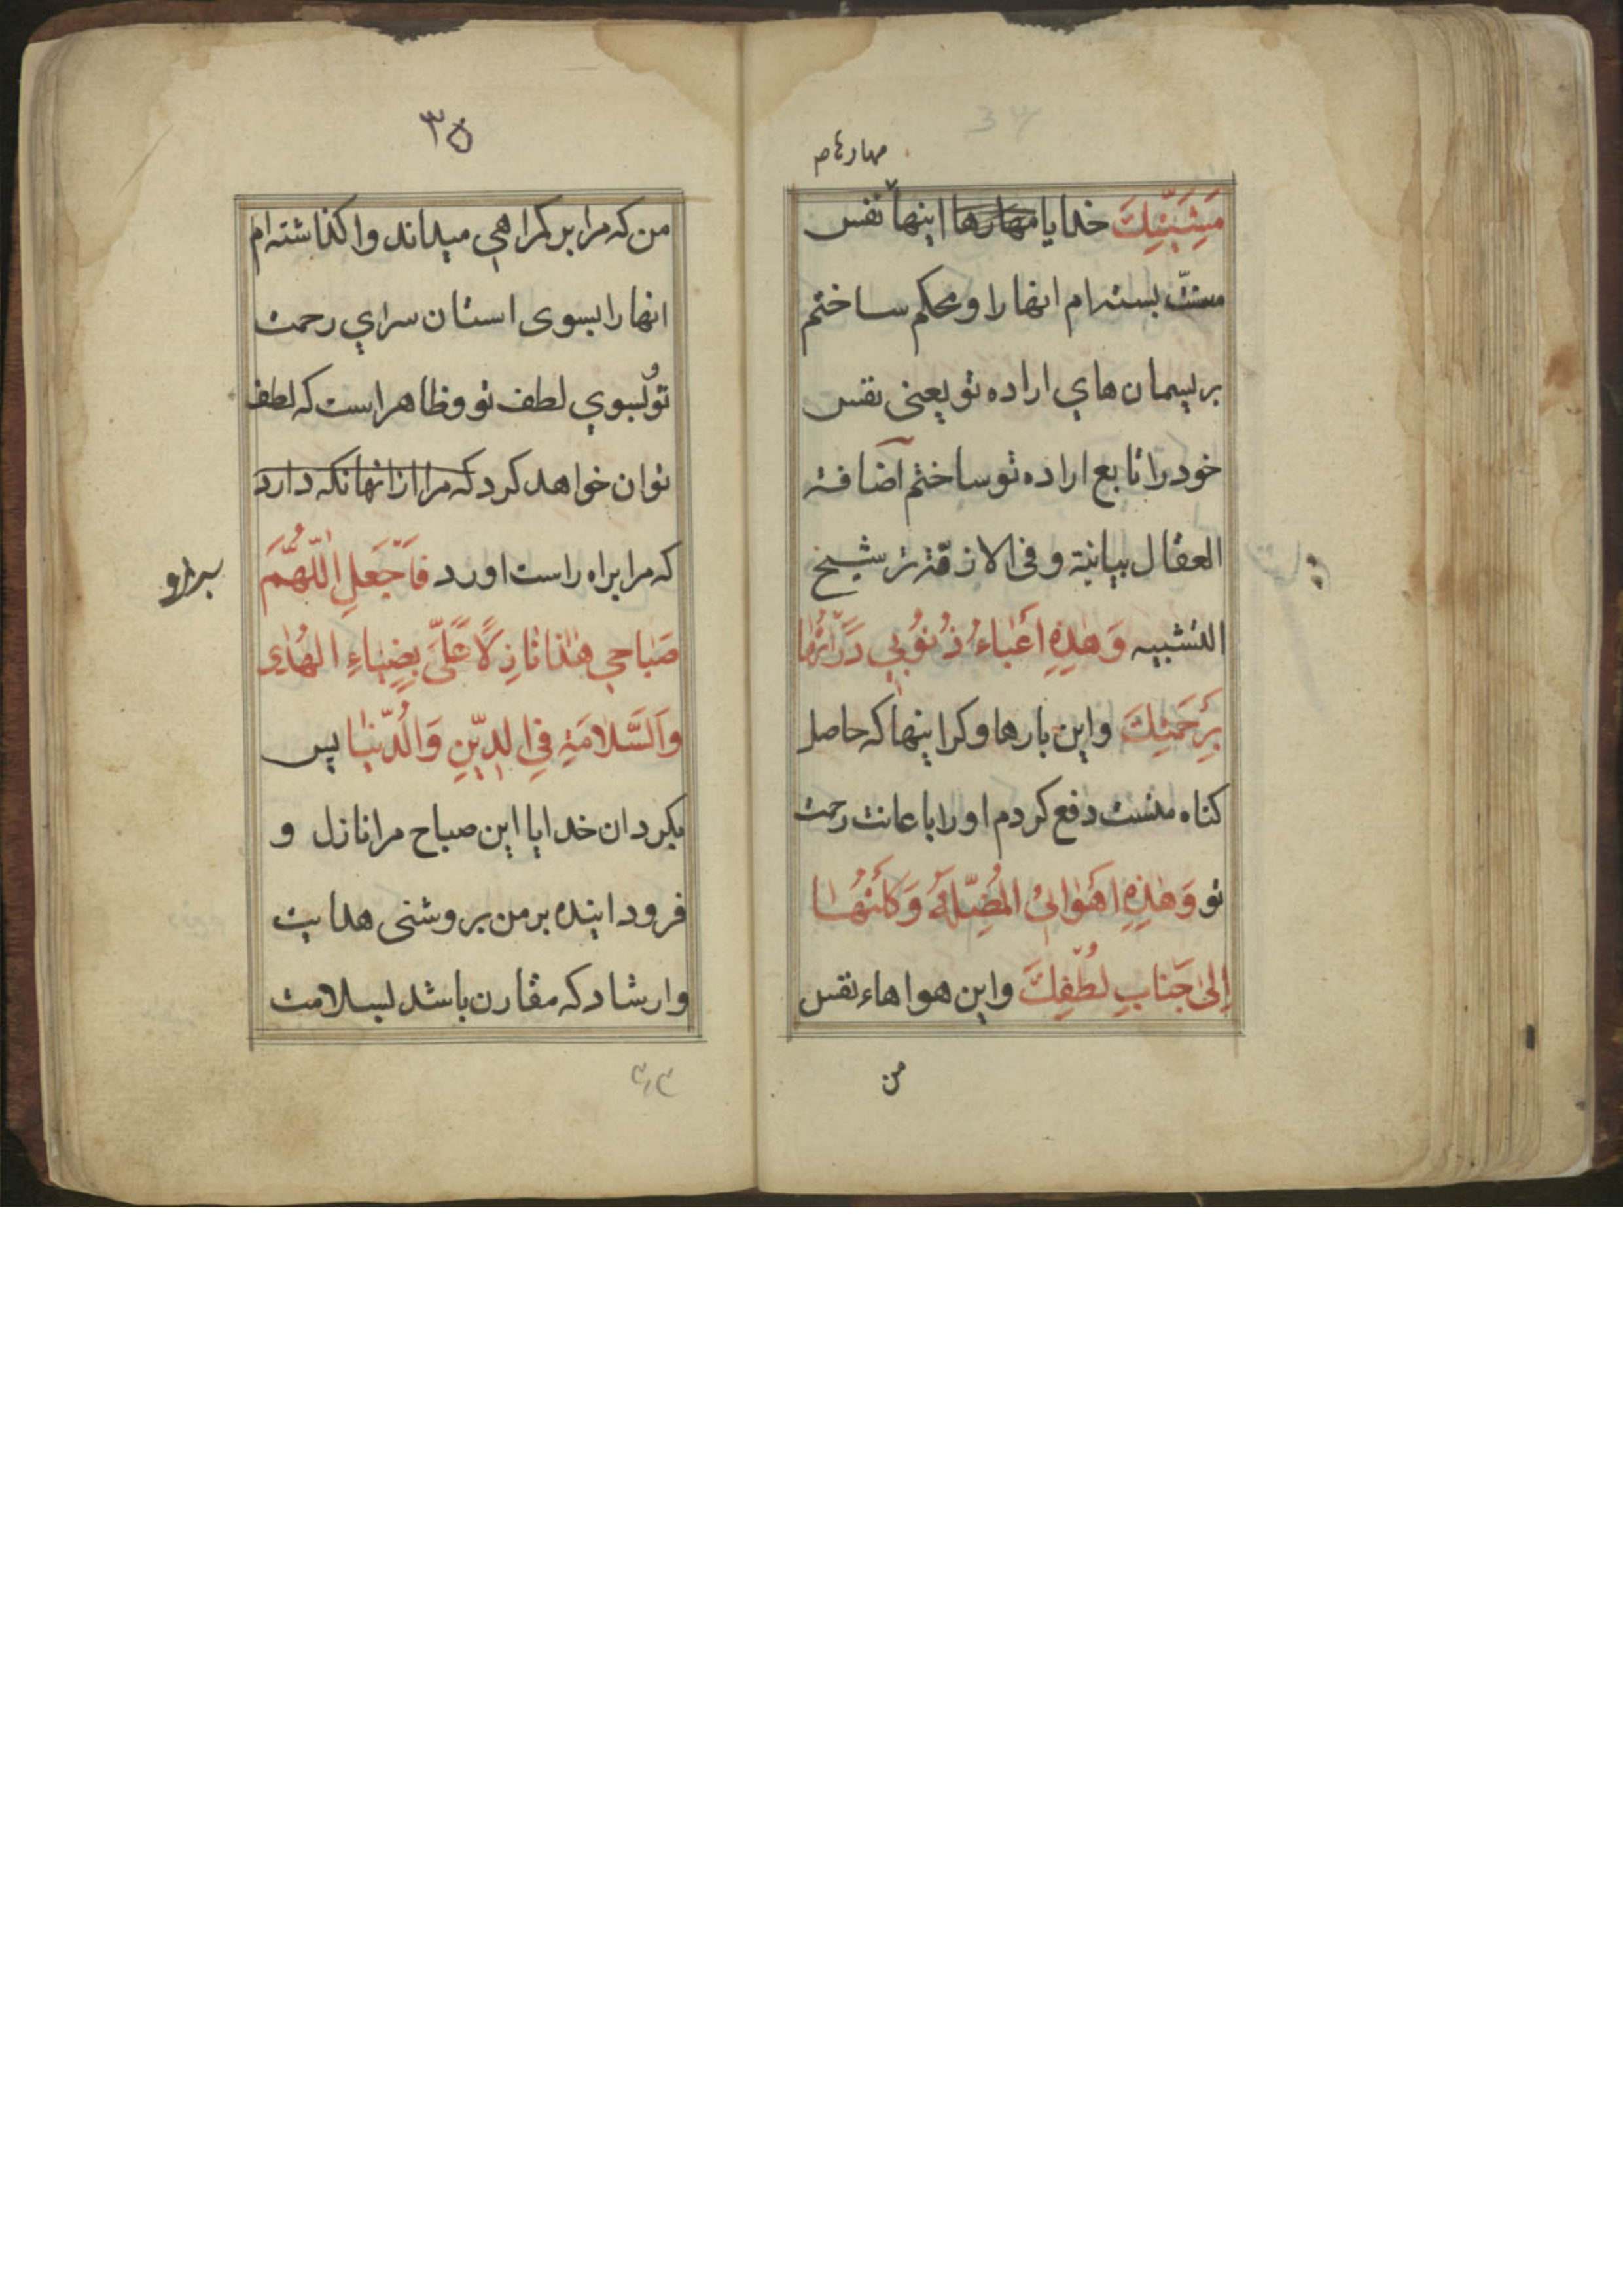 مهارهاء
مَشِیَّتِكَ خدایا مهارها اینها نفس
منست بسته‌ام انها را و محکم ساختم
بریسمان های اراده تو یعنی نفس
خود را تابع اراده تو ساختم اضافة
العقال بیانیة و فی الازمّة ترشیخ
التشبیه وَ هٰذِهِ أَعْبٰاءُ ذُنُوبِي دَرَأْتُهٰا
بِرَحْمَتِكَ و این بارها و کرانیها که حاصل
کناه منست دفع کردم او را باعانت رحمت
تو وَ هٰذِهِ اَهْوٰائِيَ المُضِلَّةُ وَكَلْتُهٰا
إِلىٰ جَنٰابِ لُطْفِكَ و این هواهاء نفس
من
۳۵
من که مرا بر کمراهی میداند واکذاشته‌ام
انها را بسوی استان سرای رحمت
تو و بسوی لطف تو و ظاهر است که لطف
تو ان خواهد کرد که مرا از انها نکه دارد
که مرا براه راست اورد فَاجْعَلِ اللّٰهُمَّ
صَبٰاحِي هٰذٰا نٰازِلًا عَلَيَّ بِضِیٰاءِ الهُدٰی
وَالسَّلٰامَةِ فِي الدِّینِ وَالدُّنْیٰا پس
بکردان خدایا این صباح مرا نازل و
فرود اینده بر من بروشنی هدایت
و ارشاد که مقارن باشد بسلامت